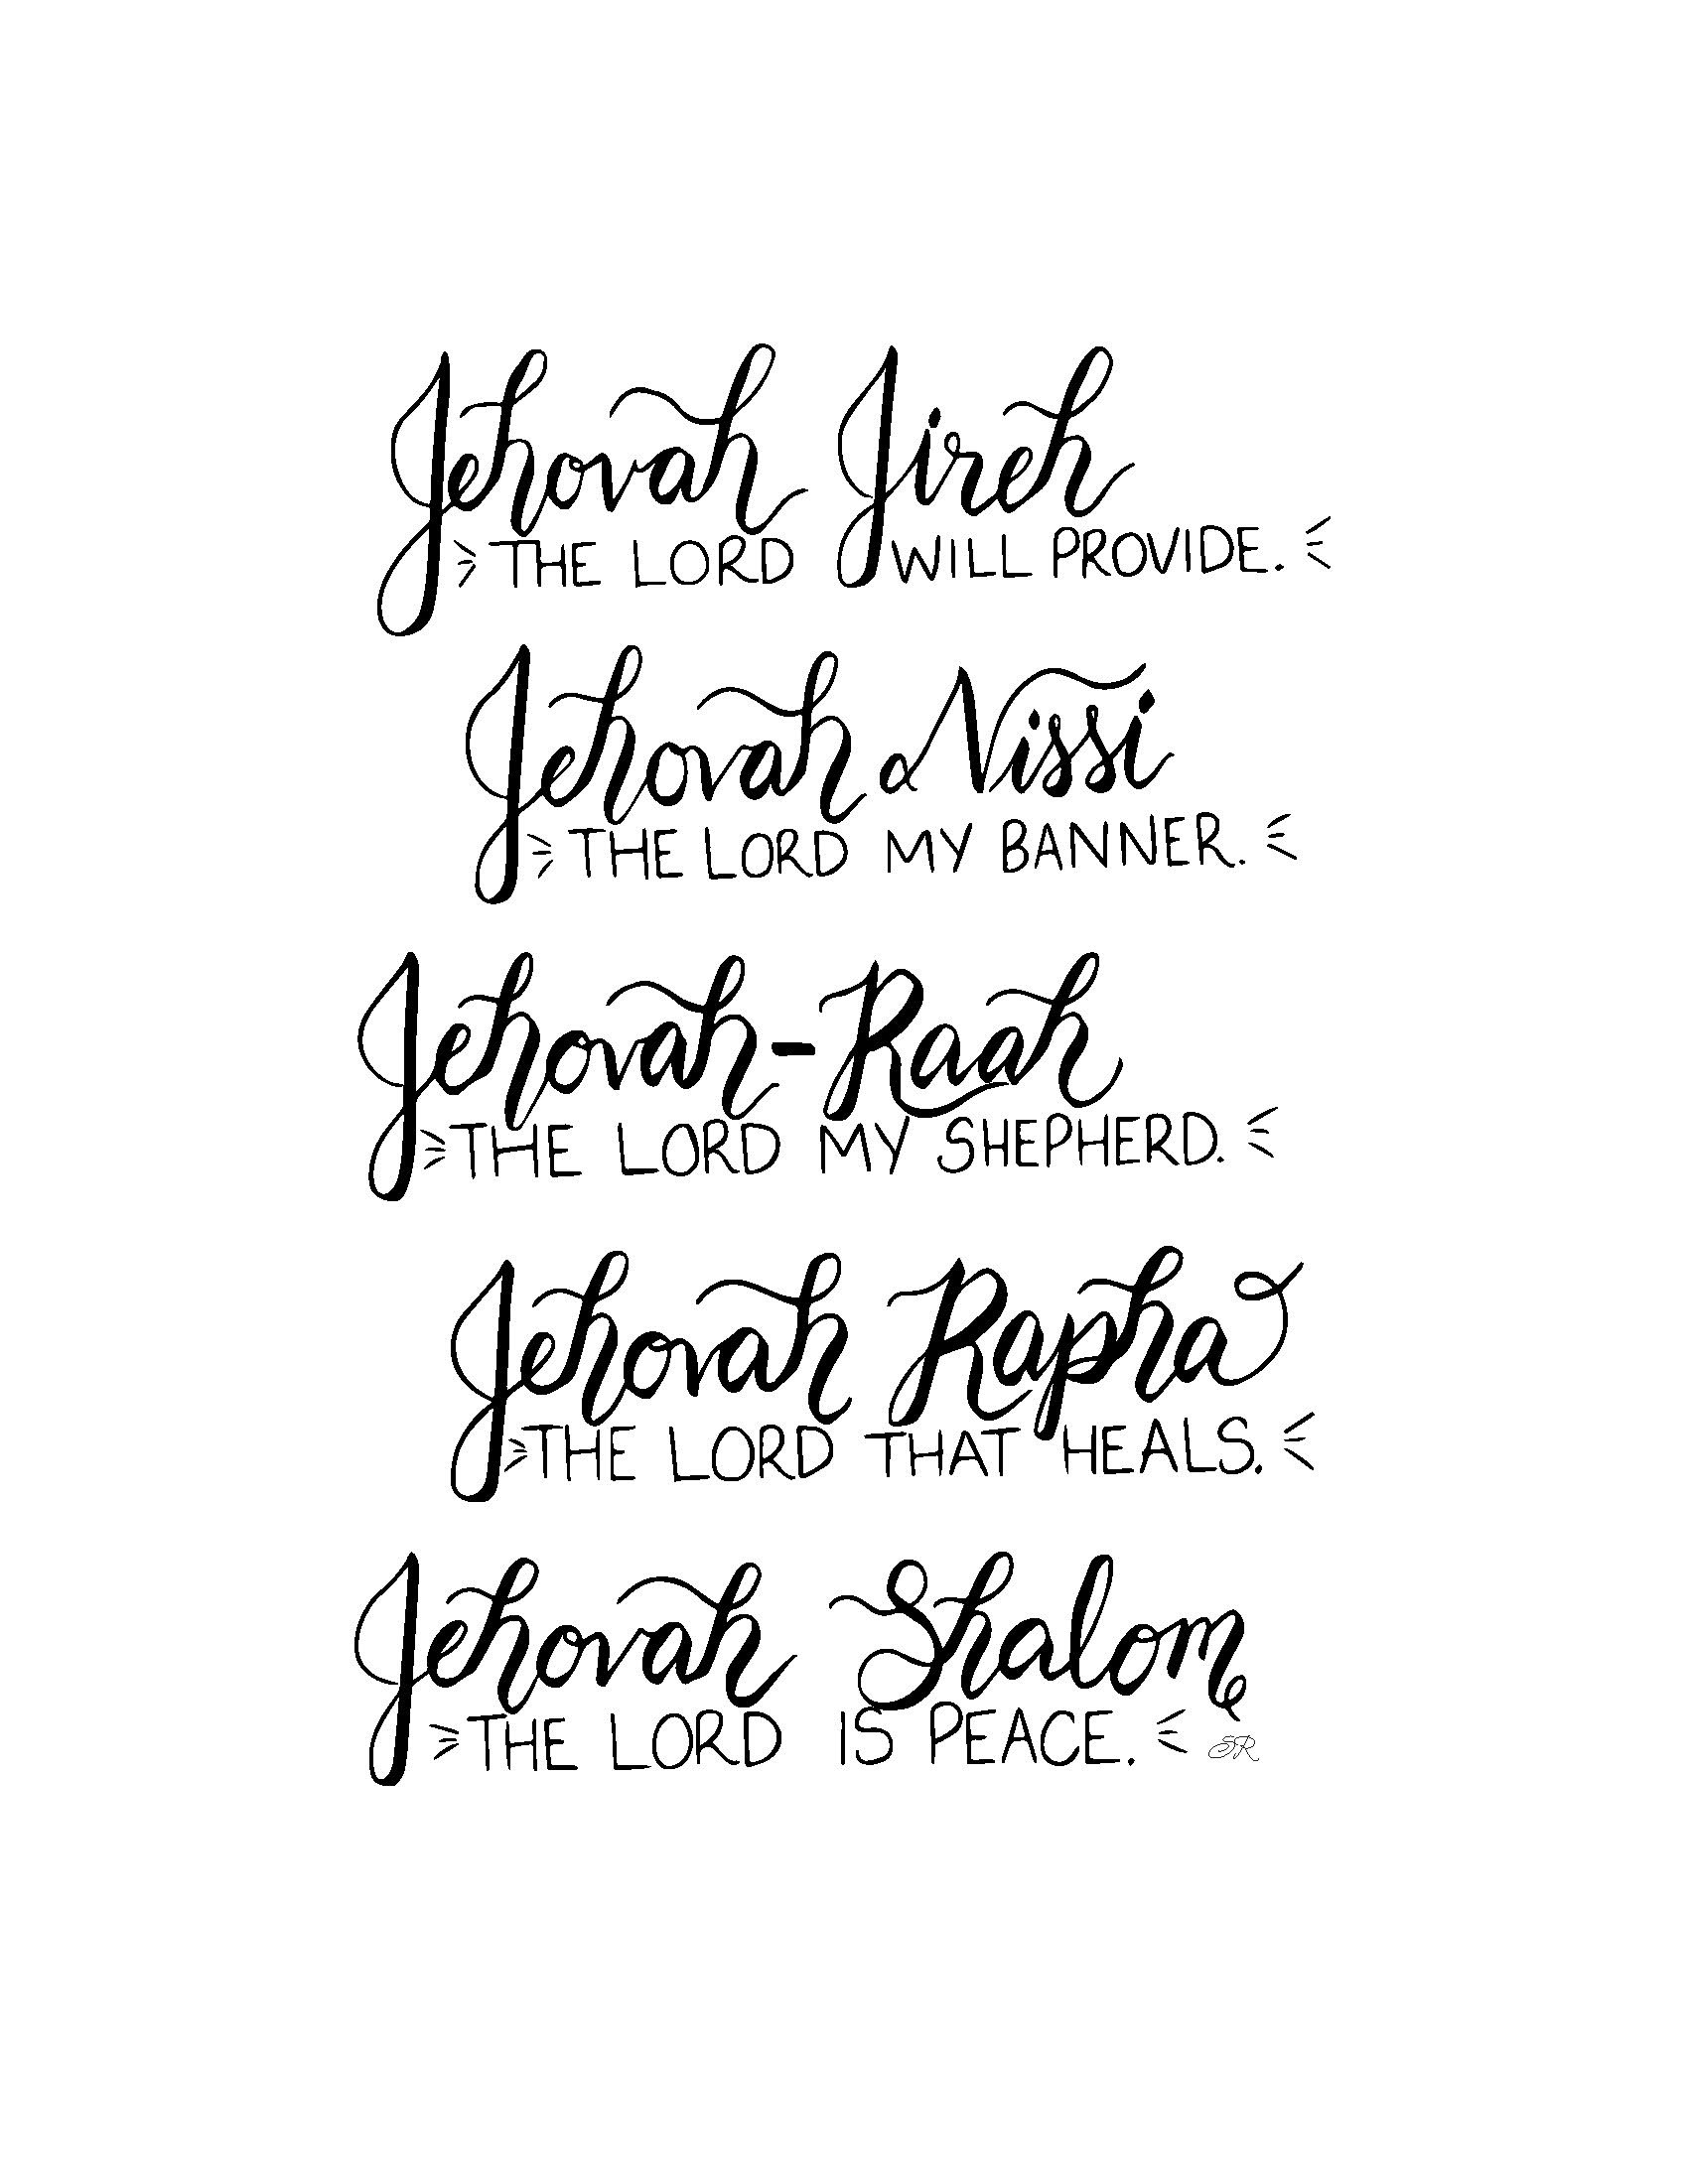 Jehovah Jireh
THE LORD WILL PROVIDE.
Jehovah Nissi
THE LORD MY BANNER.
Jehovah-Raah
THE LORD MY SHEPHERD.
Jehovah Rapha
THE LORD THAT HEALS.
Jehovah Shalom
THE LORD IS PEACE.
SR